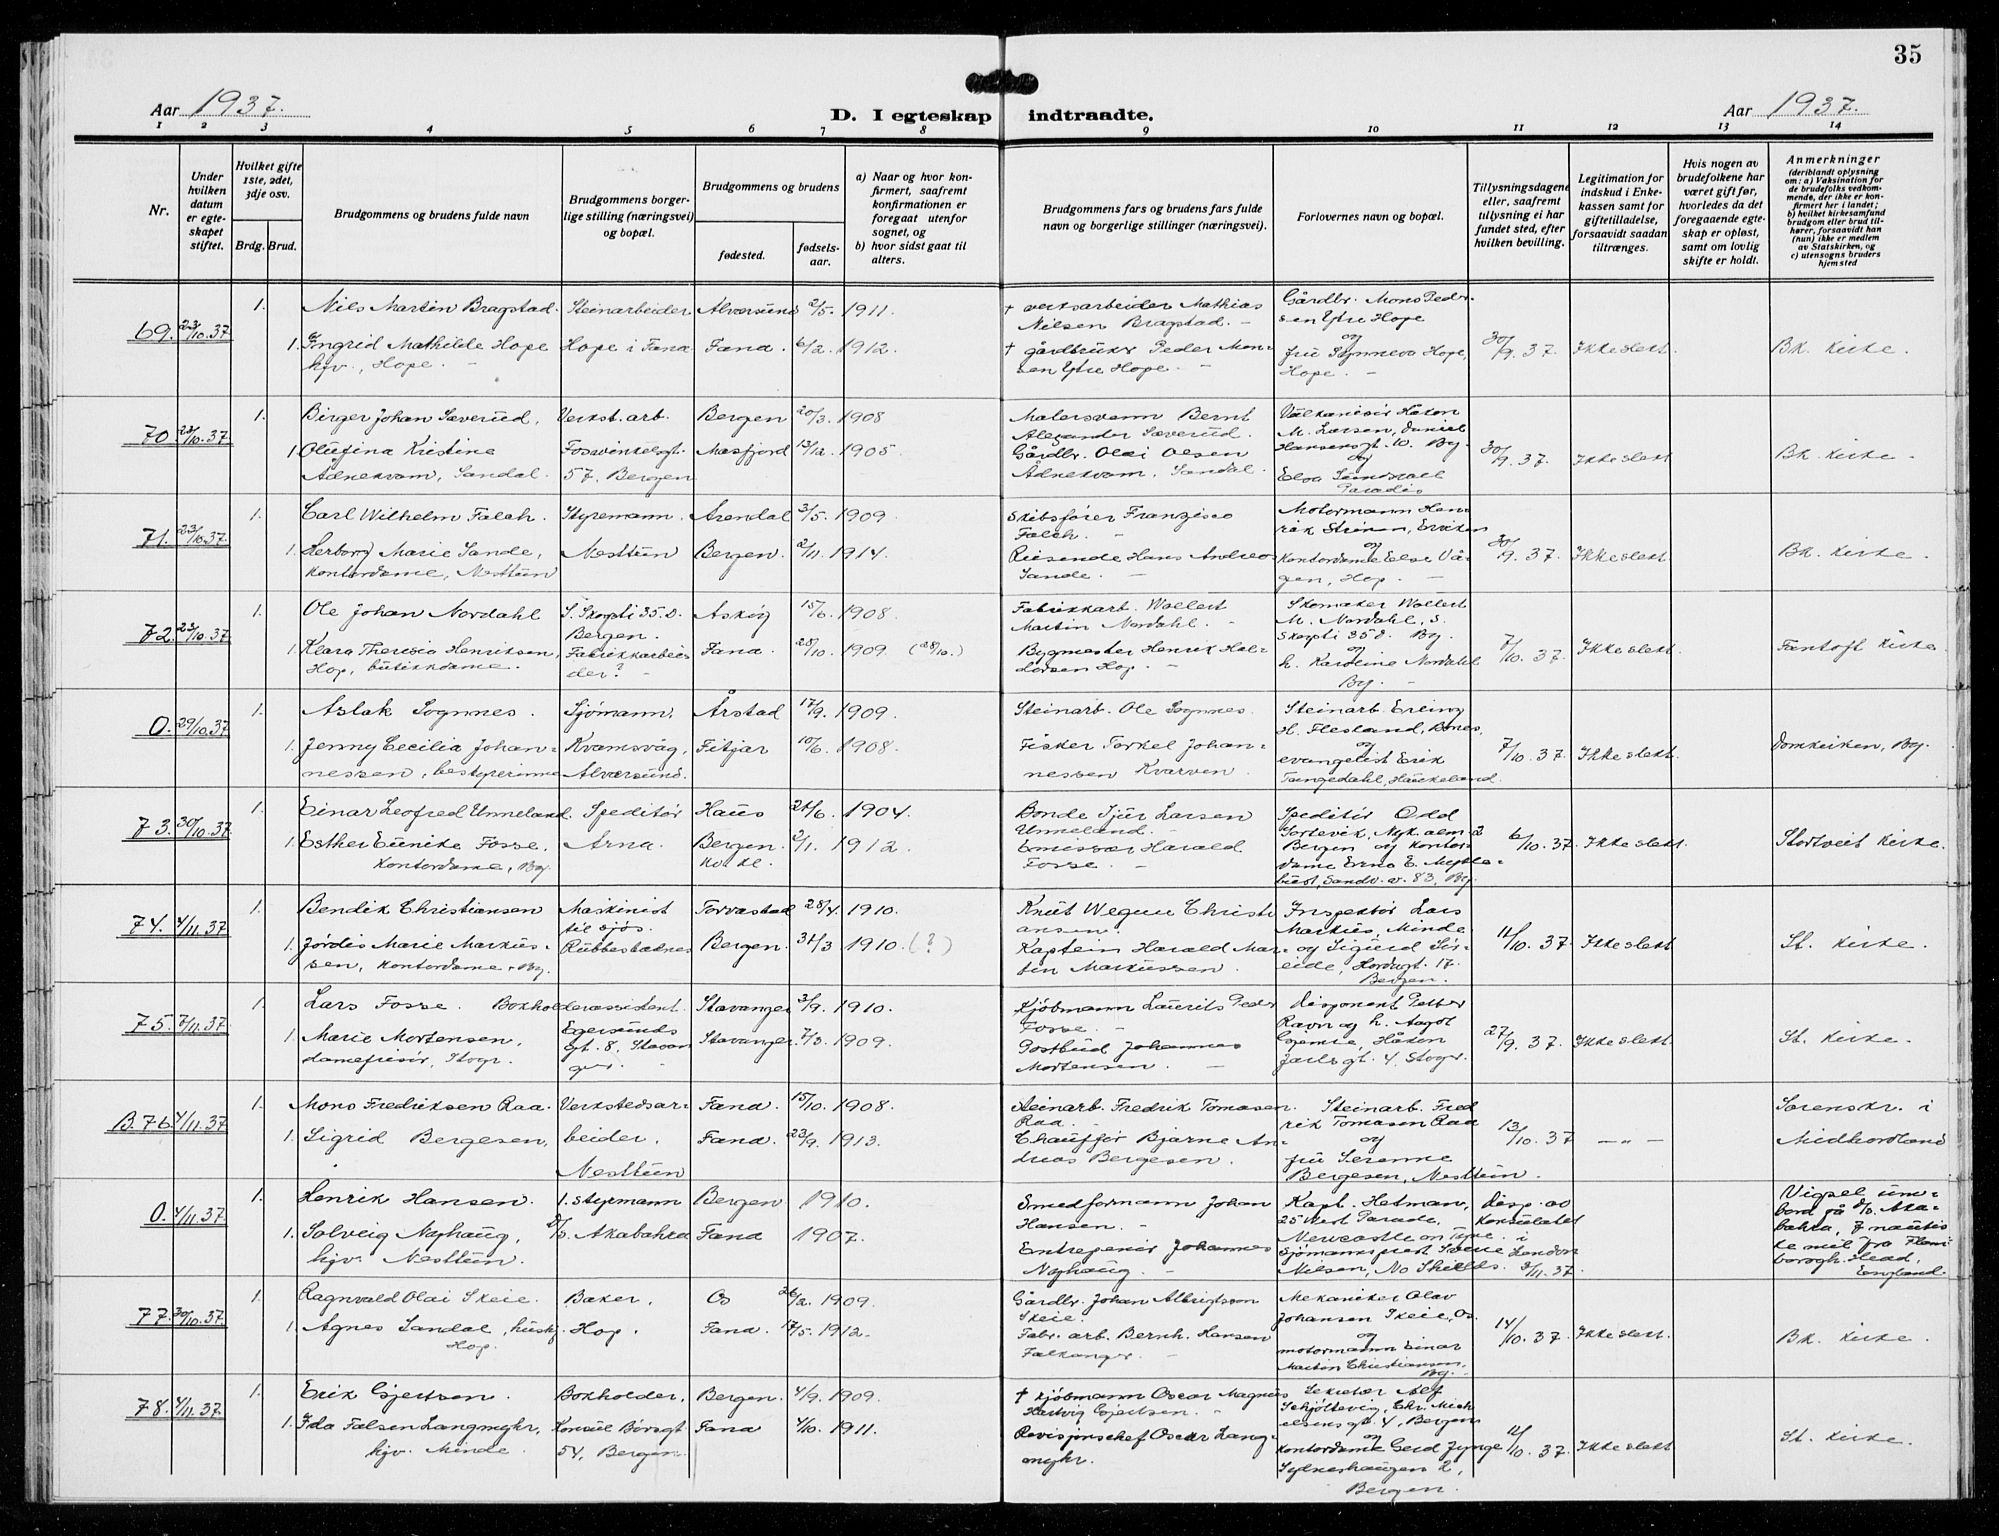 35
Aar 1937.
D. I egteskap indtraadte.
Aar 1937.
1 2 3 4 5 6 7 8 9 10 11 12 13 14
Nr.
Under hvilken datum er egteskapet stiftet.
Hvilket gifte 1ste, 2det, 3dje osv.
Brdg. Brud.
Brudgommens og brudens fulde navn
Brudgommens borgerlige stilling (næringsvei) og bopæl.
Brudgommens og brudens
fødested.
fødselsaar.
a) Naar og hvor konfirmert, saafremt konfirmationen er foregaat utenfor sognet, og
b) hvor sidst gaat til alters.
Brudgommens fars og brudens fars fulde navn og borgerlige stillinger (næringsvei).
Forlovernes navn og bopæl.
Tillysningsdagene eller, saafremt tillysning ei har fundet sted, efter hvilken bevilling.
Legitimation for indskud i Enkekassen samt for giftetilladelse, forsaavidt saadan tiltrænges.
Hvis nogen av brudefolkene har været gift før, hvorledes da det foregaaende egteskap er opløst, samt om lovlig skifte er holdt.
Anmerkninger (deriblandt oplysning om: a) Vaksination for de brudefolks vedkommende, der ikke er konfirmert her i landet; b) hvilket kirkesamfund brudgom eller brud tilhører, forsaavidt han (hun) ikke er medlem av Statskirken, og c) utensogns bruders hjemsted
69. 23/10.37 1. Nils Martin Bragstad. Steinarbeider Alversund 2/5. 1911. † Mathias Nielsen Bragstad. Gårdbr. Mons Pedersen Ytre Hope
1. Ingrid Mathilde Hope hjv., Hope. Hope i Fana Fana. 6/2. 1912. † gårdbruker Peder Monsen Ytre Hope. og fru Hope, Hope. 30/9.37. Ikke slekt. Bk. kirke.
70. 23/10.37 1. Birger Johan Sæverud, Verkst.arb. Bergen 20/3. 1908 Malersvenn Bernt Alexander Sæverud. M. Larsen, Daniel Hansensgt. 10. Bg.
1. Olufina Kristine Ådnekvam, Sandal. Fosswinkelsgt. 57, Bergen Masfjord 13/12. 1905 Gårdbr. Olai Olsen Ådnekvam, Sandal. og Paradis 30/9.37. Ikke slekt Bk. kirke.
71. 23/10.37 1. Carl Wilhelm Falch. Styremann. Arendal 3/5. 1909. Skibsfører Falch. Motormann
1. Herborg Marie Sande, kontordame, Nesttun Nesttun Bergen. 2/11. 1914. Reisende Hans Andreas Sande. og kontordame Else Vågen, Hop. 30/9.37. Ikke slekt. Bk. kirke.
72. 23/10.37 1. Ole Johan Nordahl S. Skogsti 35.D. Bergen. Askøy 15/6. 1908. Fabrikkarb. Wollert Martin Nordahl. Skomaker Wollert M. Nordahl, S. Skogsti 35 d. Bg.
1. Klara Theresia Henriksen, Hop, butikkdame. Fabrikkarbeider? Fana. 28/10. 1909. (28/10.) Bygmester Henrik Haldorsen Hop. og h. Karoline Nordahl Bg. 7/10.37. Ikke slekt. Fantoft kirke.
0. 29/10.37 1. Aslak Sognnes. Sjømann, Årstad 17/9. 1909. Steinarb. Ole Sognnes. Steinarb. Erling H. Flesland, Bønes,
1. Jenny Cecilia Johannessen, bestyrerinne Kvamsvåg, Alversund. Fitjar 10/6. 1908. Fisker Torkel Johannessen Kvarven. og evangelist Erik Tangedahl, Haukeland. 7/10.37. Ikke slekt. Domkirken, Bg.
73. 30/10.37 1. Einar Leofred Unneland. Speditør Haus 21/6. 1904. Bonde Sjur Larsen Unneland. Speditør Odd
1. Esther Eunike Fosse, kontordame, Bg. Arna. Bergen 2/1. 1912. Emissær Harald Fosse. Bergen og kontordame Erna E. Sandv.v. 83, Bg. 6/10.37. Ikke slekt. Storetveit kirke.
74. 4/11.37 1. Bendik Christiansen Maskinist til sjøs. Torvastad 28/4. 1910. Knut Christiansen. Inspektør Lars Markus, Minde
1. Jørdis Marie Markussen, kontordame, Bg. Rubbestadnes Bergen. 31/3 1910. (?) Kaptein Harald Martin Markussen. og Sigurd Søreide, Hordagt. 17. Bergen. 11/10.37. Ikke slekt. St. kirke.
75. 7/11.37 1. Lars Fosse. Bokholderassistent. Stavanger 3/9. 1910. Kjøbmann Laurits Peder Fosse. Disponent Petter Ravn
1. Marie Mortensen, damefrisør, Stvgr. Egersundsgt. 8, Stavanger. Stavanger. 7/3. 1909. Postbud Johannes Mortensen. og h. Aagot Håkon Jarlsgt. 4, Stvgr. 27/9.37. Ikke slekt. St. kirke.
B.76. 4/11.37 1. Mons Fredriksen Raa. Verkstedsarbeider, Fana. 15/10. 1908. Steinarb. Fredrik Tomasen Raa. Steinarb. Fredrik Tomasen Raa
1. Sigrid Bergesen, Nesttun Fana. 23/9. 1913. Chauffør Bjarne Andreas Bergesen. og fru Serenne Bergesen, Nesttun. 13/10.37 — „ — Sorenskr. i Midhordland
0. 4/11.37 1. Henrik Hansen. 1. styrmann Bergen 1910. Smedformann Johan Hansen. Kapt. Hetman, 25 West Parade, Newcastle on Tyne.
1. Solveig Nøphaug, hjv. Nesttun. D/S. Akabahra Fana 1907. Entreprenør Johannes Nøphaug. Sjømannsprest Nilsen, No Shields. Disp. av konsulatet i London 3/11.37. Vigsel umbord på D/S. Akabahra, 7 nautiske mil fra Flamborogh. Head, England.
77. 30/10.37 1. Ragnvald Olai Skeie. Baker, Os 26/2. 1909. Gårdbr. Johan Albrigtson Skeie. Mekaniker Olav Johansen Skeie, Os.
1. Agnes Sandal, huskj. Hop. Hop. Fana. 17/5. 1912. Fabr. arb. Bernh. Hansen Falkanger. og motormann Einar Martin Christiansen, Bg. 14/10.37. Ikke slekt. Bk. kirke.
78. 4/11.37. 1. Erik Gjertsen. Bokholder, Bergen. 4/9. 1909. † Kjøbmann Oscar Magnus Hartvig Gjertsen. Sekretær Alf Schjøltevig, Chr. Michelsensgt. 4, Bergen
1. Ida Falsen Langmyhr, hjv. Minde. Konsul Børsgt. 54, Bergen. Fana 4/10. 1911. Revisjonschef Oscar Langmyhr. og kontordame Gerd Jynge Sydneshaugen 2, Bergen. 12/10.37. Ikke slekt. St. kirke.